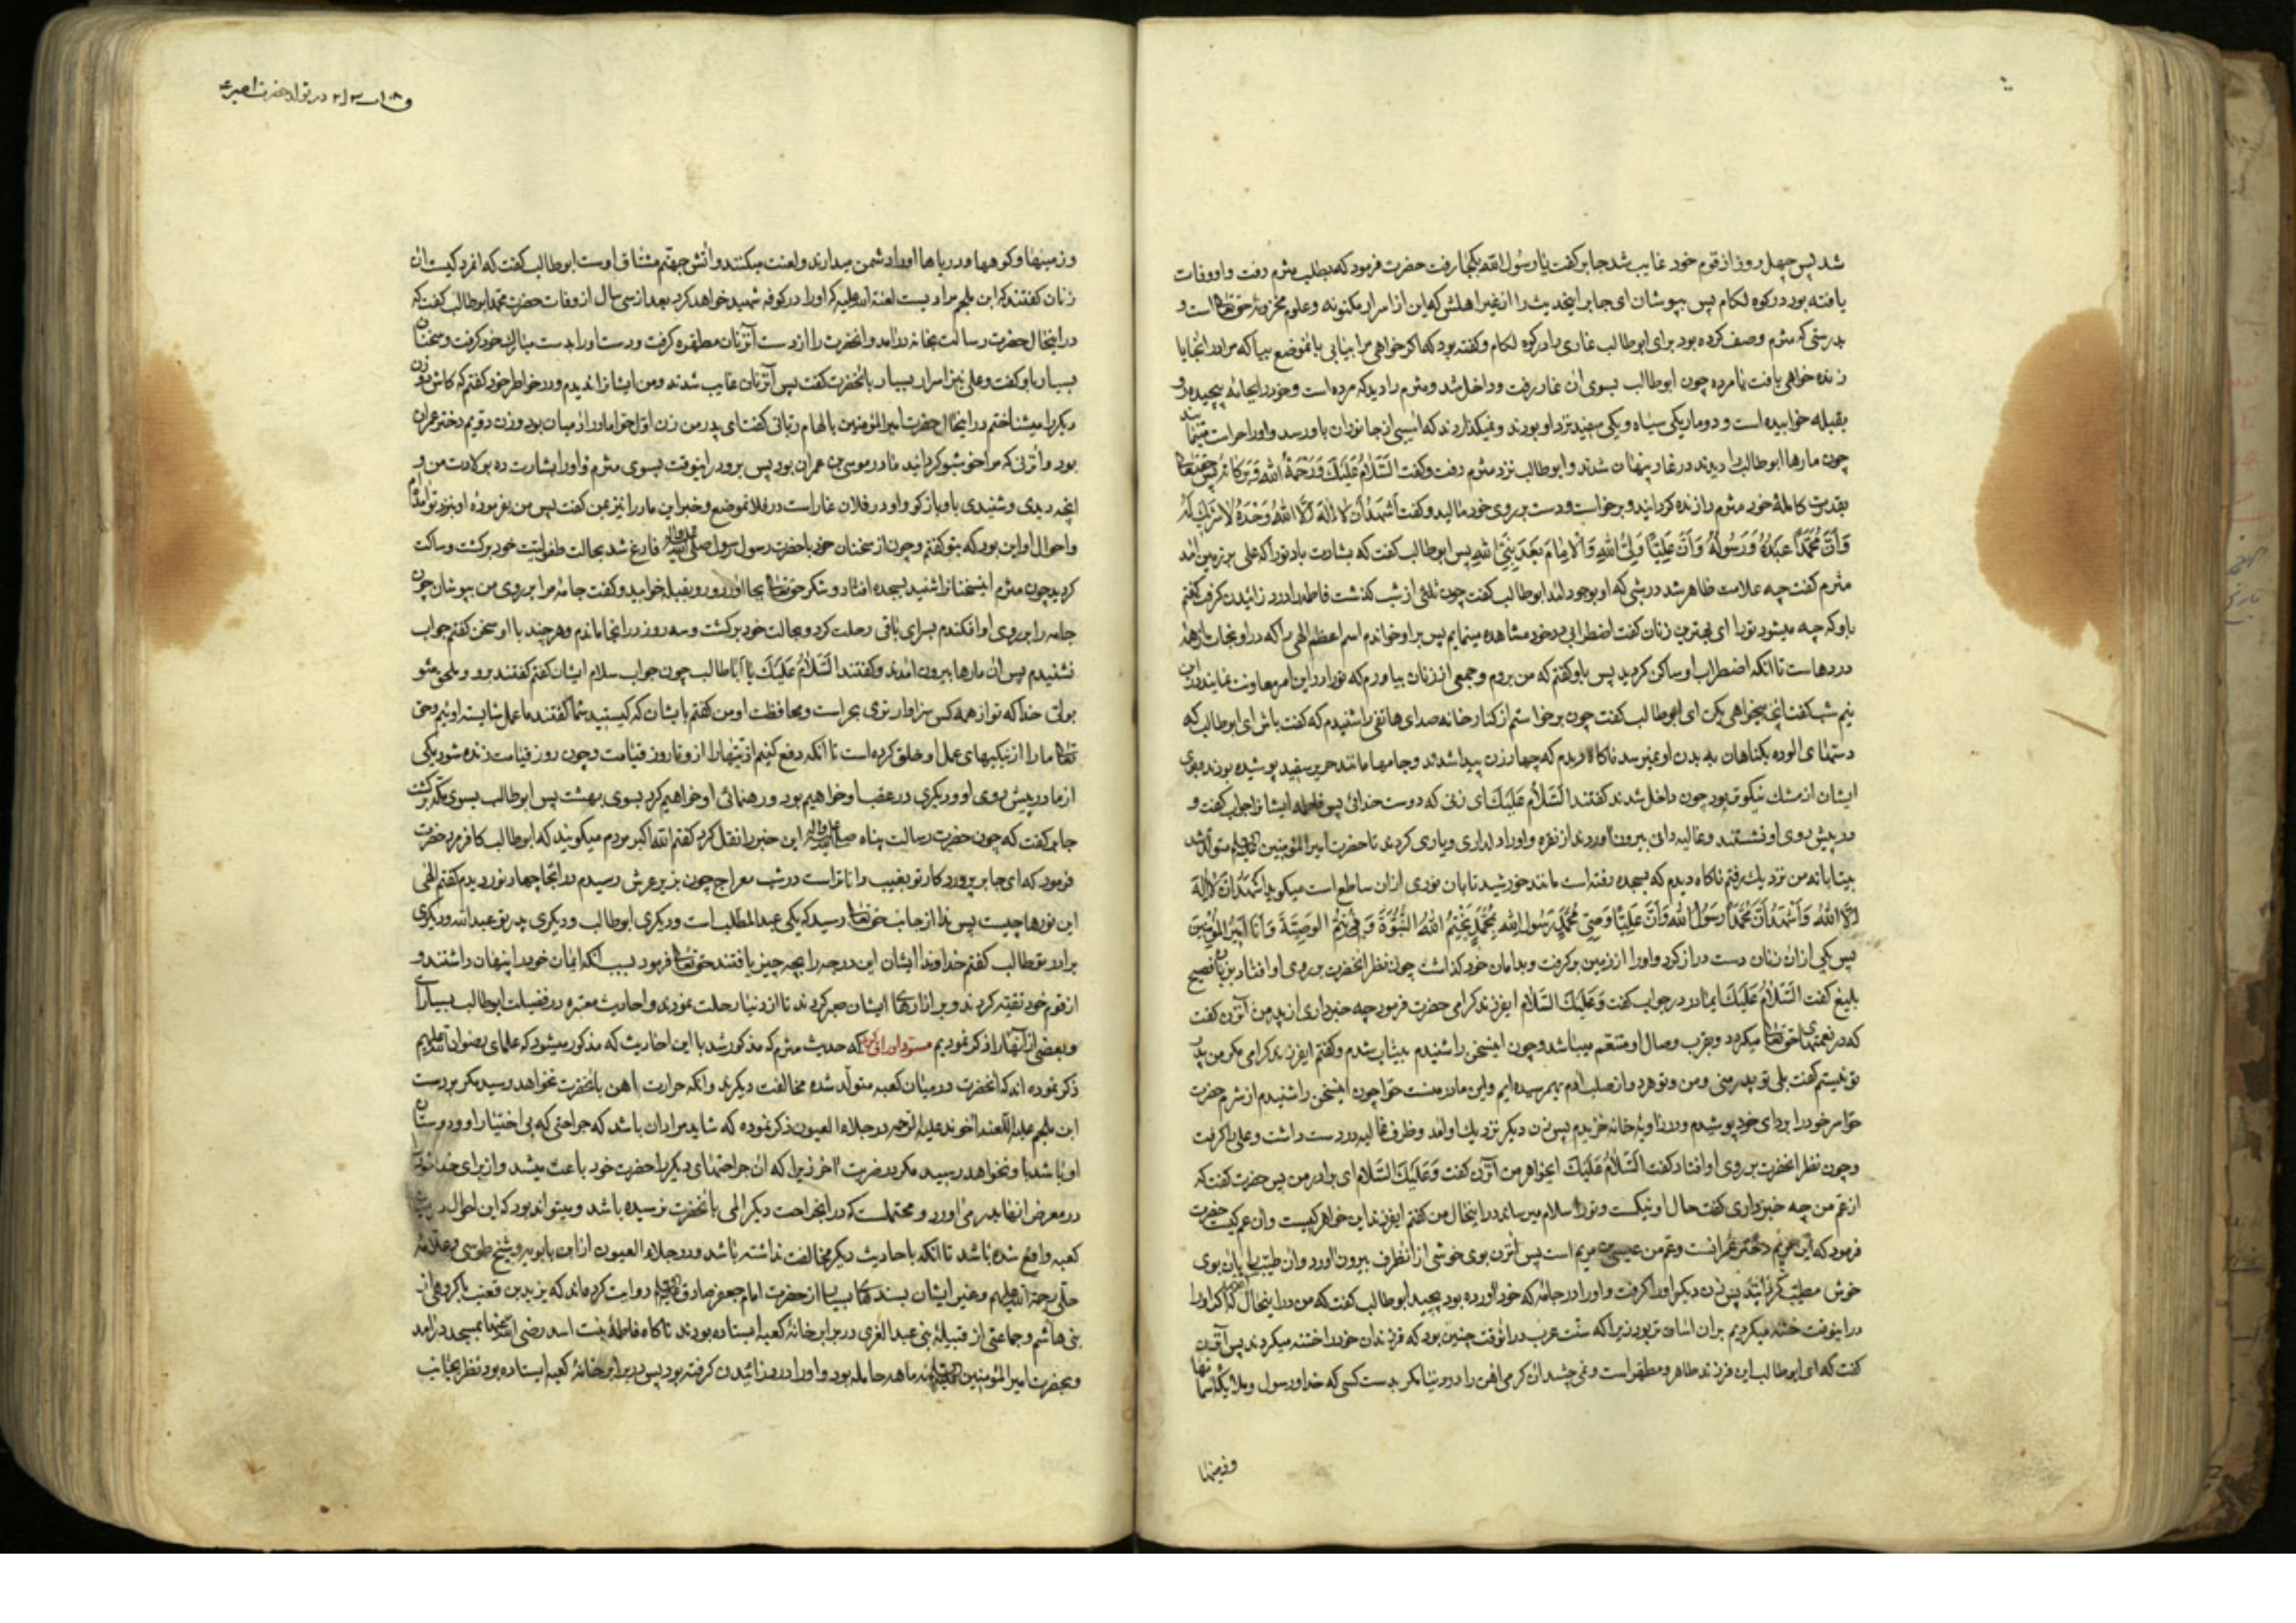 شد پس چهل روز از قوم خود غایب شد جابر گفت یا رسول الله بکجا رفت حضرت فرمود که بطلب مثرم رفت و او وفات
یافته بود در کوه لکام پس بپوشان ای جابر اینحدیث را از غیر اهلش که این از اسرار مکنونه و علوم مخزونهٔ حق تعالی است و
بدرستی که مثرم وصف کرده بود برای ابوطالب غاری را در کوه لکام و گفته بود که اگر خواهی مرا بیابی بانموضع بیا که مرا در انجا یا
زنده خواهی یافت یا مرده چون ابوطالب بسوی ان غار رفت و داخل شد و مثرم را دید که مرده است و خود را بجامه پیچیده و
بقبله خوابیده است و دو مار یکی سیاه و یکی سفید نزد او بودند و نمیگذاردند که اسیبی از جانوران باو رسد و او را حراست مینمایند
چون مارها ابوطالب را دیدند در غار پنهان شدند و ابوطالب نزد مثرم رفت و گفت السَّلامُ عَلَیْكَ وَرَحْمَةُ اللهِ وَبَرَکاتُهُ پس حقتعالی
بقدرت کاملهٔ خود مثرم را زنده گردانید و برخواست و دست بر روی خود مالید و گفت اَشْهَدُ اَنْ لا اِلهَ اِلَّا اللهُ وَحْدَهُ لا شَریكَ لَهُ
وَاَنَّ مُحَمَّدًا عَبْدُهُ وَرَسُولُهُ وَاَنَّ عَلِیًّا وَلِیُّ اللهِ وَالْاِمامُ بَعْدَ نَبِیِّ اللهِ پس ابوطالب گفت که بشارت باد تو را که علی بر زمین امد
مثرم گفت چه علامت ظاهر شد در شبی که او بوجود امد ابوطالب گفت چون ثلثی از شب گذشت فاطمه را درد زائیدن گرفت گفتم
باو که چه میشود تو را ای بهترین زنان گفت اضطرابی در خود مشاهده مینمایم پس بر او خواندم اسم اعظم الهی را که در او نجات از همهٔ
دردهاست تا انکه اضطراب او ساکن گردید پس باو گفتم که من بروم و جمعی از زنان بیاورم که تو را در این امر معاونت نمایند در این
نیم شب گفت انچه میخواهی بکن ای ابوطالب گفت چون برخواستم از کنار خانه صدای هاتفی را شنیدم که گفت باش ای ابوطالب که
دستهای الوده بگناهان به بدن او نمیرسد ناگاه دیدم که چهار زن پیدا شدند و جامها مانند حریر سفید پوشیده بودند و بوی
ایشان از مشك نیکوتر بود چون داخل شدند گفتند السَّلامُ عَلَیْكِ ای زنی که دوست خدائی پس فاطمه ایشانرا جواب گفت و
در پیش روی او نشستند و غالیه دانی بیرون آوردند از نقره و او را دلداری و یاری کردند تا حضرت امیرالمؤمنین متولد شد
بیتابانه من نزدیك رفتم ناگاه دیدم که بسجده رفته است مانند خورشید تابان نوری ازان ساطع است میگوید اَشْهَدُ اَنْ لا اِلهَ
اِلَّا اللهُ وَاَشْهَدُ اَنَّ مُحَمَّدًا رَسُولُ اللهِ وَاَنَّ عَلِیًّا وَصِیُّ مُحَمَّدٍ رَسُولِ اللهِ بِمُحَمَّدٍ یَخْتِمُ اللهُ النُّبُوَّةَ وَبی یُتِمُّ الوَصِیَّةَ وَاَنَا اَمیرُ المُؤْمِنینَ
پس یکی از ان زنان دست دراز کرد و او را از زمین برگرفت و بدامان خود گذاشت چون نظر انحضرت بر روی او افتاد بزبان فصیح
بلیغ گفت السَّلامُ عَلَیْكِ ایمادر در جواب گفت وَعَلَیْكَ السَّلام ایفرزند گرامی حضرت فرمود چه خبر داری از پدر من آنزن گفت
که در نعمتهای حق تعالی میگردد و بقرب وصال او متنعم میباشد و چون اینسخن را شنیدم بیتاب شدم و گفتم ایفرزند گرامی مگر من پدر
تو نیستم گفت بلی تو پدر منی و من و تو هر دو از صلب ادم بهم رسیده ایم و این مادر منست حوا چون اینسخن را شنیدم از شرم حضرت
حوا سر خود را بردای خود پوشیدم و در زاویهٔ خانه خزیدم پس زن دیگر نزدیك او امد و ظرف غالیه در دست داشت و علی را گرفت
و چون نظر انحضرت بر روی او افتاد گفت السَّلامُ عَلَیْكِ ایخواهر من آنزن گفت وَعَلَیْكَ السَّلام ای برادر من پس حضرت گفت که
از عم من چه خبر داری گفت حال او نیکست و تو را سلام میرساند در اینحال من گفتم ایفرزند این خواهر کیست و ان عم کیست حضرت
فرمود که این مریم دختر عمرانست و عم من عیسی بن مریم است پس آنزن بوی خوشی از انظرف بیرون اورد و ان طیب را بان بوی
خوش مطیب گردانید پس زن دیگر او را گرفت و او را در جامهٔ که خود آورده بود پیچید ابوطالب گفت که من در اینحال گفتم که اگر او را
در اینوقت ختنه میکردیم بر ان اسان تر بود زیرا که سنت عرب در انوقت چنین بود که فرزندان خود را ختنه میکردند پس آنزن
گفت که ای ابوطالب این فرزند طاهر و مطهر است و نمی چشد ان گرمی اهن را در دنیا مگر بدست کسی که خدا و رسول و ملایکه و اسمانها
و زمینها
در تولد حضرت امیر ع
و زمینها و کوهها و دریاها او را دشمن میدارند و لعنت میکنند و اتش جهنم مشتاق اوست ابوطالب گفت که انمرد کیست ان
زنان گفتند که ابن ملجم مرادیست لعنة الله علیه که او را در کوفه شهید خواهد کرد بعد از سی سال از وفات حضرت محمد ابوطالب گفت که
در اینحال حضرت رسالت بخانه درامد و انحضرت را از دست آنزنان مطهره گرفت و دست او را بدست مبارك خود گرفت و سخنان
بسیار باو گفت و علی نیز اسرار بسیار بانحضرت گفت پس آنزنان غایب شدند و من ایشانرا ندیدم و در خاطر خود گفتم که کاش دو زن
دیگر را میشناختم در اینحال حضرت امیرالمؤمنین بالهام ربانی گفت ای پدر من زن اول حوا مادر ادمیان بود و زن دویم دختر عمران
بود و انزنی که مرا خوشبو گردانید مادر موسی بن عمران بود پس برو در اینوقت بسوی مثرم و او را بشارت ده بولادت من و
انچه دیدی و شنیدی باو باز گو و او در فلان غار است در فلانموضع و خبر این مار را نیز بمن گفت پس من بفرمودهٔ او بنزد تو امدم
و احوال او این بود که بتو گفتم و چون از سخنان خود با حضرت رسول صلی الله علیه و آله فارغ شد بحالت طفولیت خود برگشت و ساکت
گردید چون مثرم اینسخنانرا شنید بسجده افتاد و شکر حق تعالی بجا آورد و رو بقبله خوابید و گفت جامهٔ مرا بر روی من بپوشان چون
جامه را بر روی او افکندم بسرای باقی رحلت کرد و بحالت خود برگشت و سه روز در انجا ماندم و هر چند با او سخن گفتم جواب
نشنیدم پس ان مارها بیرون امدند و گفتند السَّلامُ عَلَیْكَ یا اَبا طالب چون جواب سلام ایشان گفتم گفتند برو و ملحق شو
بولی خدا که تو از همه کس سزاوارتری بحراست و محافظت او من گفتم بایشان که کیستید شما گفتند ما عمل شایستهٔ اوئیم و حق
تعالی ما را از نیکیهای عمل او خلق کرده است تا انکه دفع کنیم اذیتها را از او تا روز قیامت و چون روز قیامت زنده شود یکی
از ما در پیش روی او و دیگری در عقب او خواهیم بود و رهنمائی او خواهیم کرد بسوی بهشت پس ابوطالب بسوی مکه برگشت
جابر گفت که چون حضرت رسالت پناه صلی الله علیه و آله این خبر را نقل کرد گفتم الله اکبر مردم میگویند که ابوطالب کافر مرد حضرت
فرمود که ای جابر پروردگار تو بغیب داناتر است در شب معراج چون بزیر عرش رسیدم در انجا چهار نور دیدم گفتم الهی
این نورها چیست پس ندا از جانب حق تعالی رسید که یکی عبدالمطلب است و دیگری ابوطالب و دیگری پدر تو عبدالله و دیگری
برادر تو طالب گفتم خداوندا ایشان این درجه را بچه چیز یافتند حق تعالی فرمود بسبب انکه ایمان خود را پنهان داشتند و
از قوم خود تقیه کردند و بر ازارهای ایشان صبر کردند تا از دنیا رحلت نمودند و احادیث معتبره در فضیلت ابوطالب بسیار است
و بعضی از آنها را ذکر نمودیم مسود اوراق گوید که حدیث مثرم که مذکور شد با این احادیث که مذکور میشود که علمای رضوان الله علیهم
ذکر نموده اند که انحضرت در میان کعبه متولد شده مخالفت دیگرند و انکه حرارت اهن بانحضرت نخواهد رسید مگر بر دست
ابن ملجم علیه اللعنه اخوند علیه الرحمه در جلاء العیون ذکر نموده که شاید مراد ان باشد که جراحتی که بی اختیار او و دوستان
او باشد باو نخواهد رسید مگر در ضربت آخر زیرا که ان جراحتهای دیگر را حضرت خود باعث میشد و از برای خدا خود را
در معرض انها بدر می اورد و محتملست که در انجراحت دیگر المی بانحضرت نرسیده باشد و میتواند بود که این احوال در
کعبه واقع شده باشد تا انکه با حادیث دیگر مخالفت نداشته باشد و در جلاء العیون از ابن بابویه و شیخ طوسی و علامهٔ
حلی رحمة الله علیهم و غیر ایشان بسندهای بسیار از حضرت امام جعفر صادق روایت کرده اند که یزید بن قعنب با گروهی از
بنی هاشم و جماعتی از قبیلهٔ بنی عبد العزی در برابر خانهٔ کعبه ایستاده بودند ناگاه فاطمهٔ بنت اسد رضی الله عنها بمسجد درامد
و بحضرت امیرالمؤمنین نه ماهه حامله بود و او را درد زائیدن گرفته بود پس در برابر خانهٔ کعبه ایستاده بود نظر بجانب